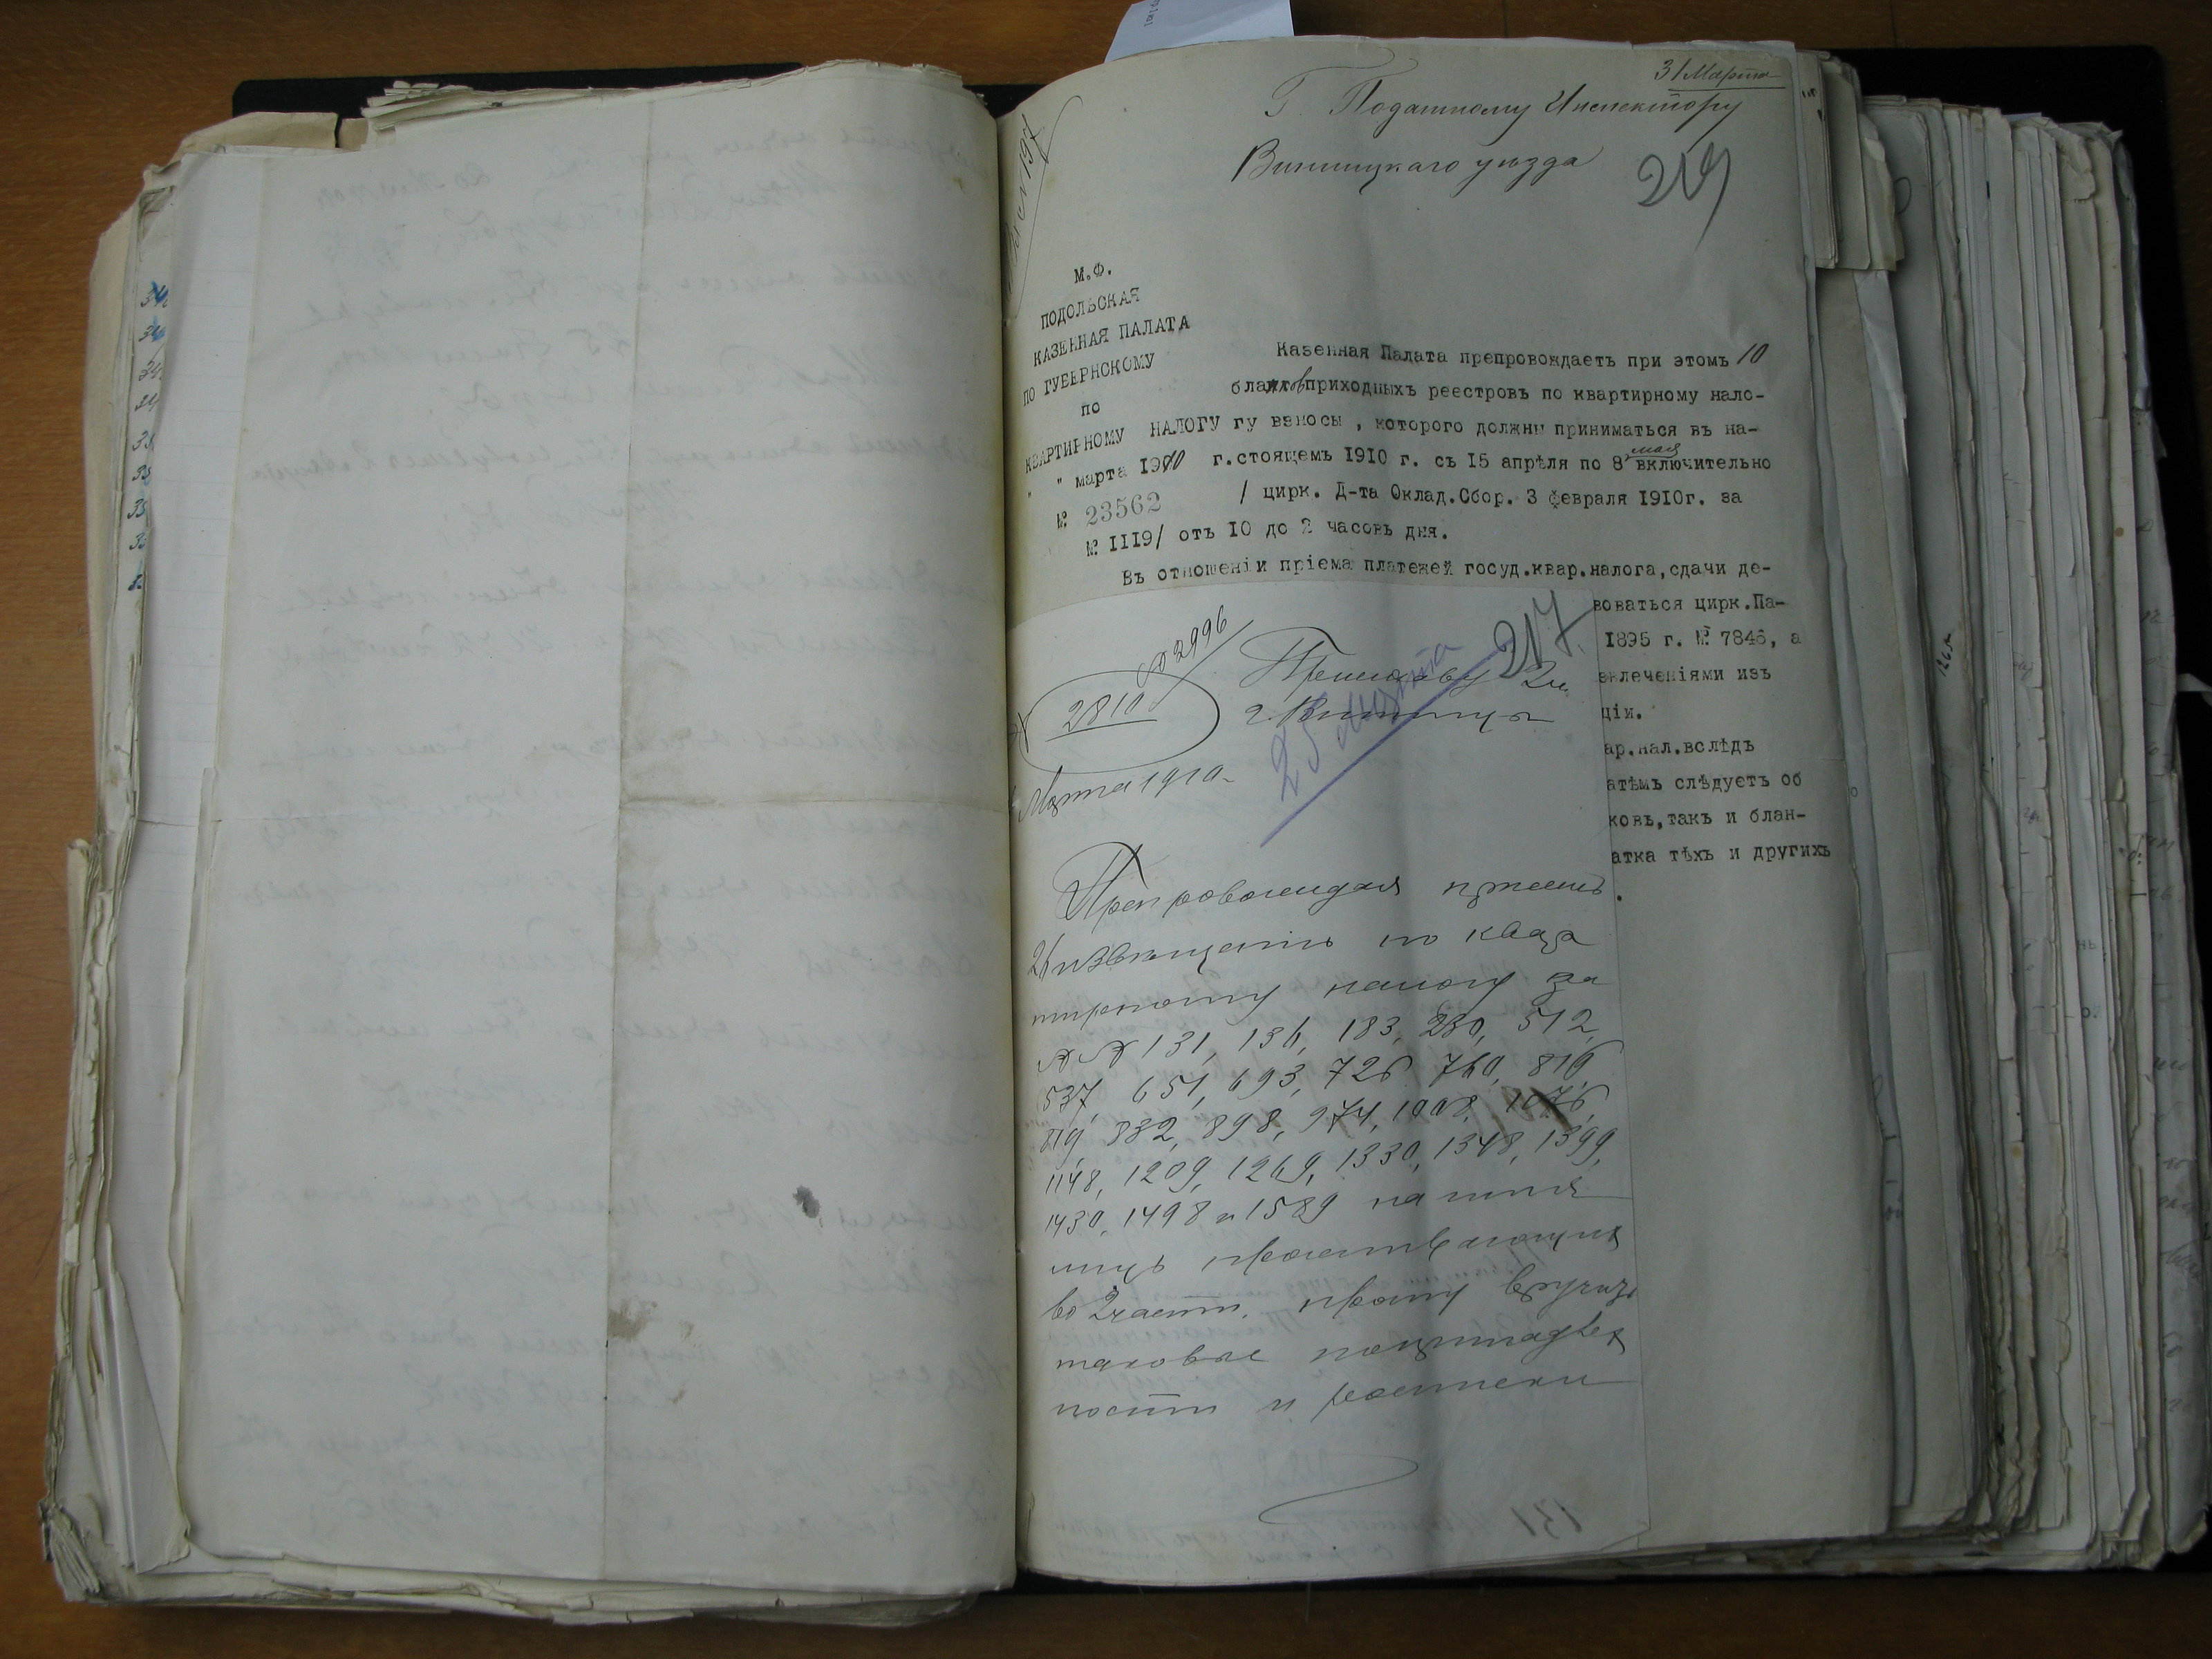 31 Марта
Г. Податному Инспектору
Винницкаго уѣзда
219
М.Ф.
ПОДОЛЬСКАЯ
КАЗЕННАЯ ПАЛАТА
ПО ГУБЕРНСКОМУ
ПО
КВАРТИРНОМУ НАЛОГУ
" " марта 1910 г.
№ 23562
Казенная Палата препровождаетъ при этомъ 10
бланковъ приходныхъ реестровъ по квартирному нало-
гу взносы, которого должны приниматься въ на-
стоящемъ 1910 г. съ 15 апрѣля по 8 мая включительно
/ цирк. Д-та Оклад.Сбор. 3 февраля 1910г. за
№ 1119/ отъ 10 до 2 часовъ дня.
Въ отношеніи пріема платежей госуд.квар.налога,сдачи де-
воваться цирк.Па-
1895 г. № 7846, а
влеченіями изъ
ціи.
ар.нал.вслѣдъ
атѣмъ слѣдуетъ об
ковъ,такъ и блан-
атка тѣхъ и другихъ
.
217
№ 2996
№ 2810
Приставу 2 ч.
г. Винницы
25 марта
Марта 1910
Препровождая при семъ
26 извѣщеній по квар
тирному налогу за
№№ 131, 136, 183, 230, 512,
537, 651, 693, 726, 760, 816,
819, 832, 898, 974, 1008, 1076,
1148, 1209, 1269, 1330, 1348, 1399,
1430, 1498 и 1589 на имя
лицъ проживающихъ
во 2 части, прошу вручить
таковые по принадлеж
ности и расписки
131